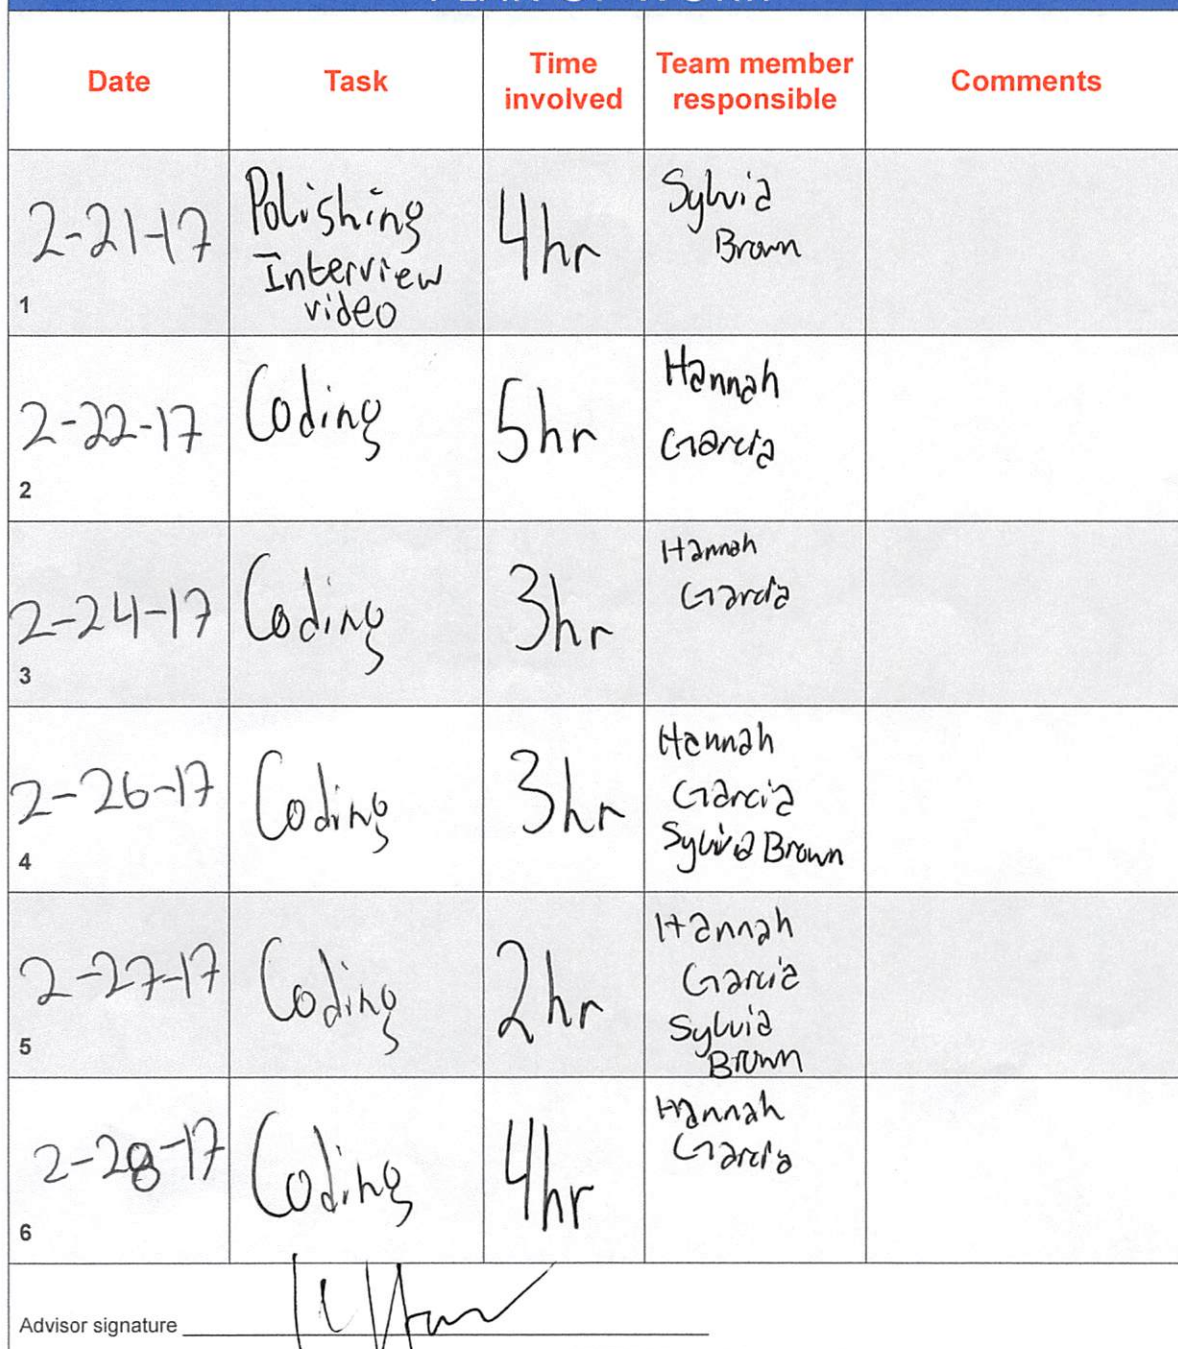 Date Task Time involved Team member responsible Comments
1 2-21-17 Polishing Interview video 4hr Sylvia Brown
2 2-22-17 Coding 5hr Hannah Garcia
3 2-24-17 Coding 3hr Hannah Garcia
4 2-26-17 Coding 3hr Hannah Garcia Sylvia Brown
5 2-27-17 Coding 2hr Hannah Garcia Sylvia Brown
6 2-28-17 Coding 4hr Hannah Garcia
Advisor signature